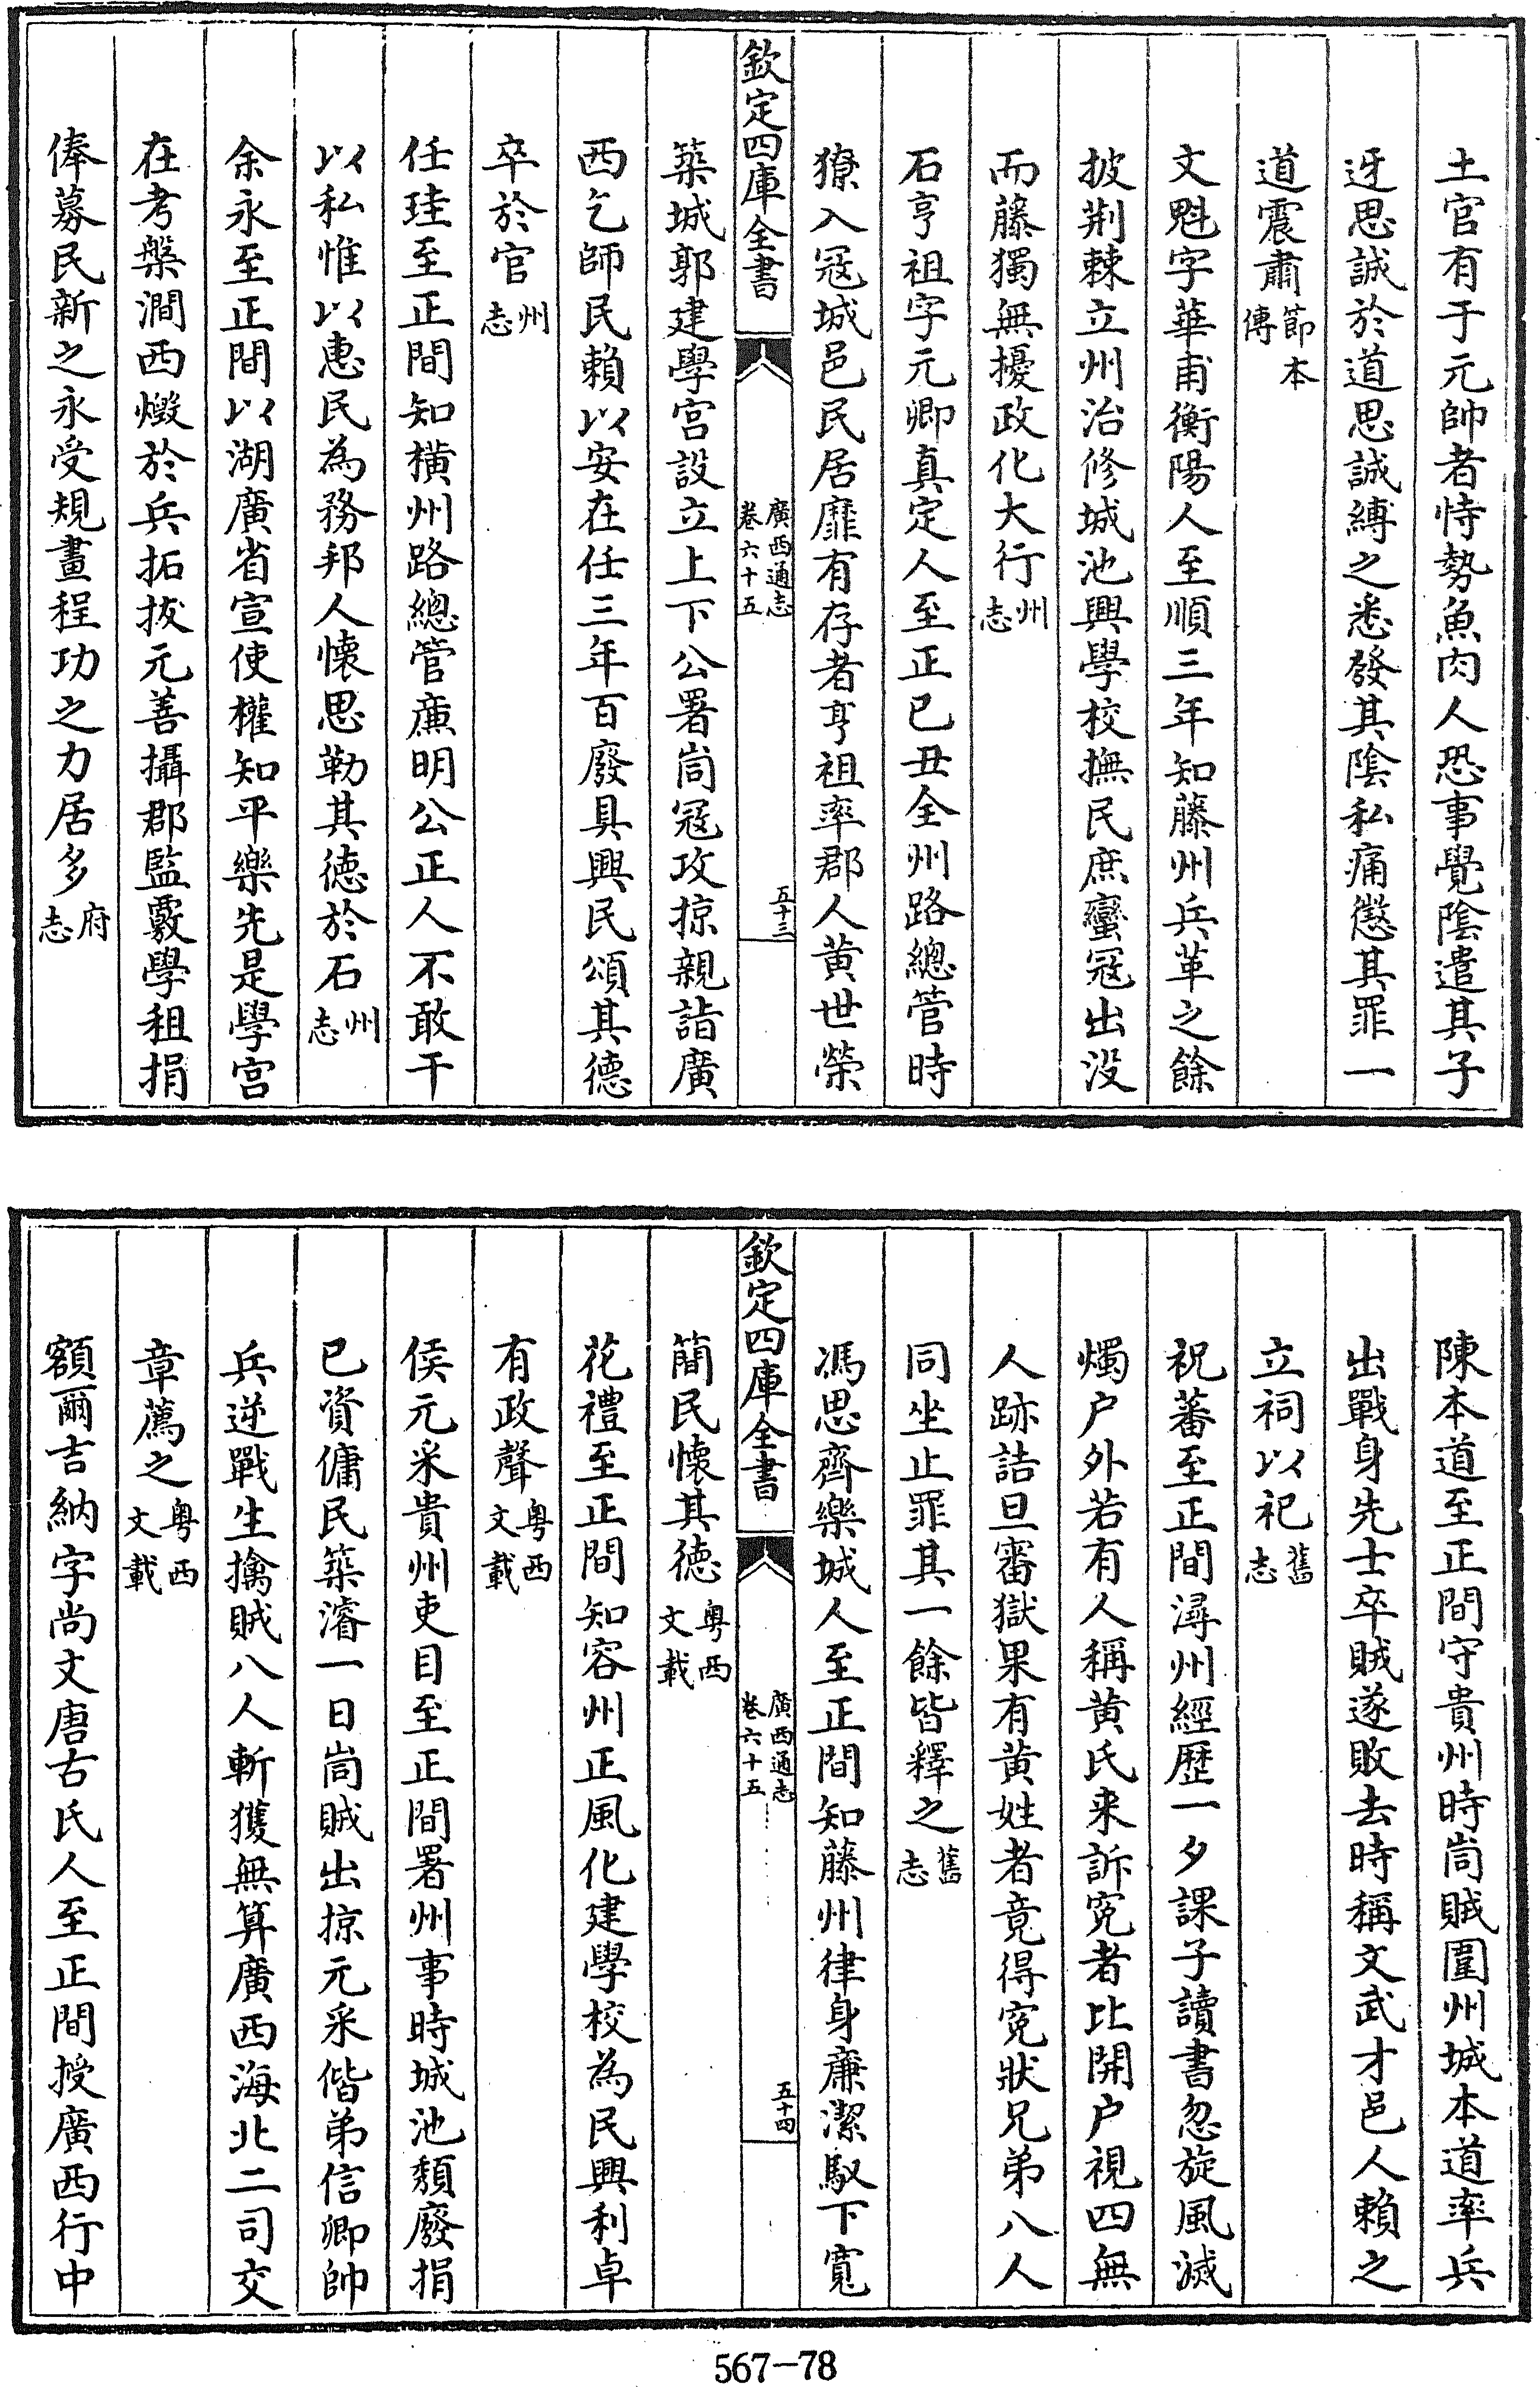 土官有于元帥者恃勢魚肉人恐事覺陰遣其子
迓思誠於道思誠縛之悉發其陰私痛懲其罪一
道震肅節本傳
文魁字華甫衡陽人至順三年知藤州兵革之餘
披荆棘立州治修城池興學校撫民庶蠻冦出没
而藤獨無擾政化大行州志
石亨祖字元卿真定人至正已丑全州路總管時
獠入冦城邑民居靡有存者亨祖率郡人黄世榮
欽定四庫全書
廣西通志
卷六十五
五十三
築城郭建學宫設立上下公署峝冦攻掠親詣廣
西乞師民賴以安在任三年百廢具興民頌其德
卒於官州志
任珪至正間知横州路總管㢘明公正人不敢干
以私惟以惠民為務邦人懷思勒其徳於石州志
余永至正間以湖廣省宣使權知平樂先是學宫
在考槃澗西燬於兵拓拔元善攝郡監覈學租捐
俸募民新之永受規畫程功之力居多府志
陳本道至正間守貴州時峝賊圍州城本道率兵
出戰身先士卒賊遂敗去時稱文武才邑人賴之
立祠以祀舊志
祝蕃至正間潯州經歴一夕課子讀書忽旋風滅
燭户外若有人稱黄氏来訴寃者比開户視四無
人跡詰旦審獄果有黄姓者竟得寃狀兄弟八人
同坐止罪其一餘皆釋之舊志
馮思齊樂城人至正間知藤州律身亷潔馭下寬
欽定四庫全書
廣西通志
卷六十五
五十四
簡民懷其徳粤西文載
花禮至正間知容州正風化建學校為民興利卓
有政聲粤西文載
侯元采貴州吏目至正間署州事時城池頽廢捐
已資傭民築濬一日峝賊出掠元采偕弟信卿帥
兵逆戰生擒賊八人斬獲無算廣西海北二司交
章薦之粤西文載
額爾吉納字尚文唐古氏人至正間授廣西行中
567-78